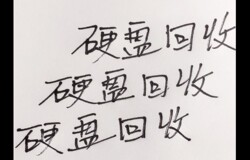 硬盘回收
硬盘回收
硬盘回收